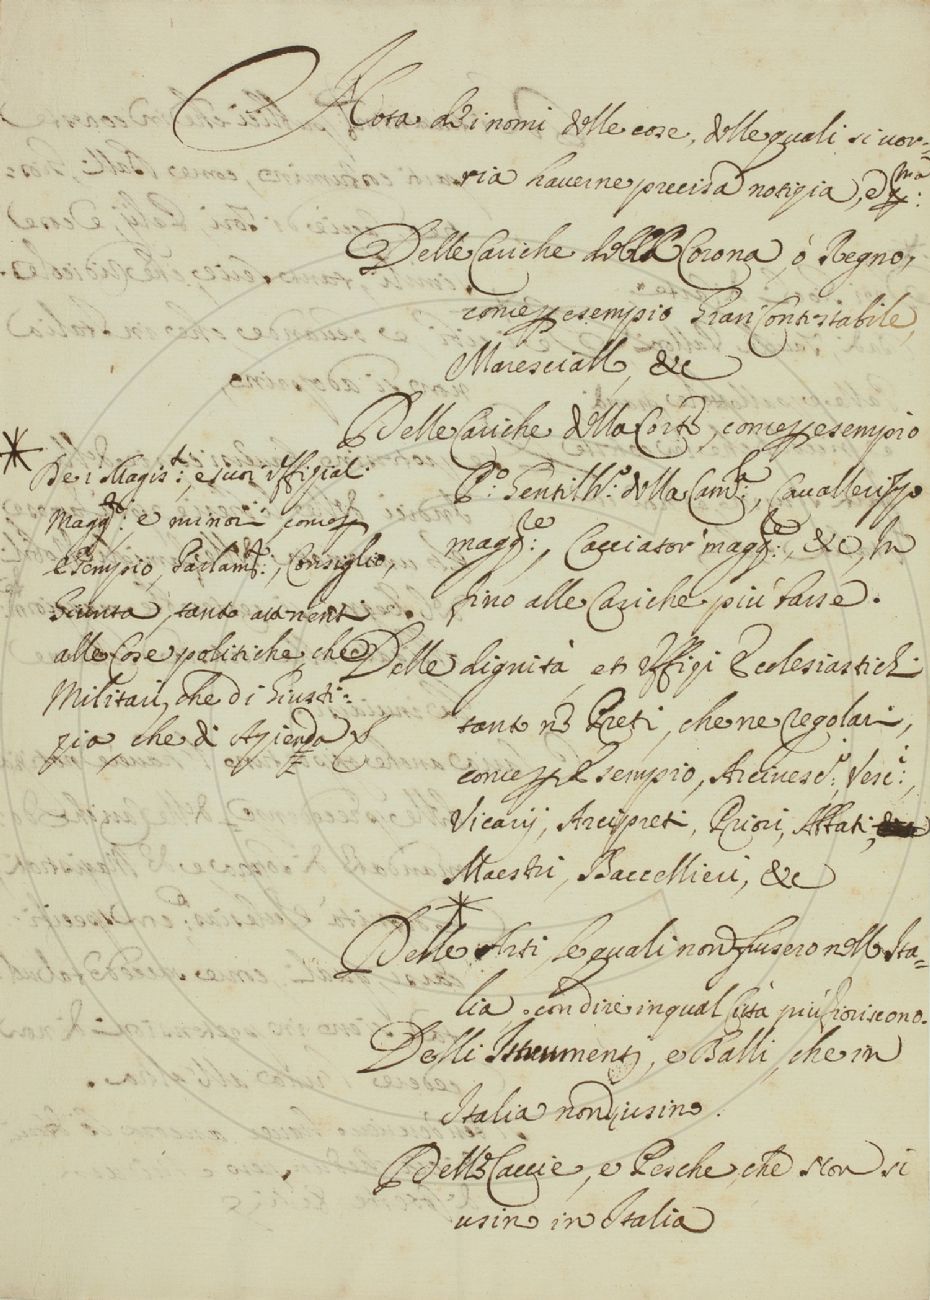 Nota dei nomi delle cose, delle quali si vor=
ria haverne precisa notizia, e p.ma
Delle Cariche della Corona, ò Regno,
come p esempio Gran Contestabile,
Marescial, &c
Delle Cariche della Corte, come p esempio
P.o Gentilh.o della Cam.a, Cavallerizzo
magg.re, Cacciator magg.re, &c, in
fino alle Cariche più basse.
Delle dignità, et Uffizi Ecclesiastici
tanto ne Preti, che ne regolari,
come p Esempio, Arcivesc.i, Vesc.i,
Vicarij, Arcipreti, Priori, Abbati,
Maestri, Baccellieri, &c
*
Delle Arti, le quali non fusero nell Ita=
lia, con dire in qual Città più fioriscono.
Delli Istrumenti, e Balli, che in
Italia non si usino.
Delle Caccie, e Pesche che non si
usin in Italia
*
De i Magis.ti, e suoi Uffizial
Magg.ri e minori come p
esempio, Parlam.ti, Consiglio,
Giunta, tanto attinenti
alle Cose politiche, che
Militari, che di Giusti=
zia, che di Azienda